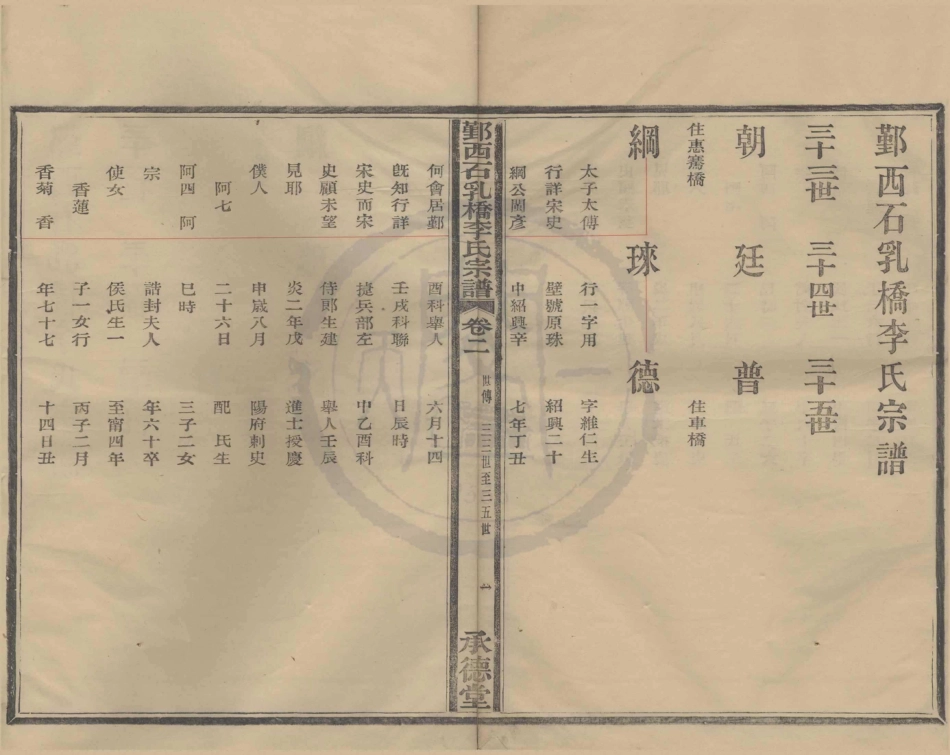 鄞西石乳橋李氏宗譜
三十三世 三十四世 三十五世
朝 廷 普
住惠騫橋 住車橋
綱 琜 德
太子太傅 行一字用 字維仁生
行詳宋史 壁號原琜 紹興二十
綱公閩彥 中紹興辛 七年丁丑
鄞西石乳橋李氏宗譜 卷二 世傳 三三世至三五世 一 承德堂
何會居鄞 酉科舉人 六月十四
旣知行詳 壬戌科聯 日辰時
宋史而宋 捷兵部左 中乙酉科
史顧未望 侍郎生建 舉人壬辰
見耶 炎二年戊 進士授慶
僕人 申歲八月 陽府刺史
阿七 二十六日 配 氏生
阿四 阿 巳時 三子二女
宗 誥封夫人 年六十卒
使女 侯氏生一 至甯四年
香蓮 子一女行 丙子二月
香菊 香 年七十七 十四日丑